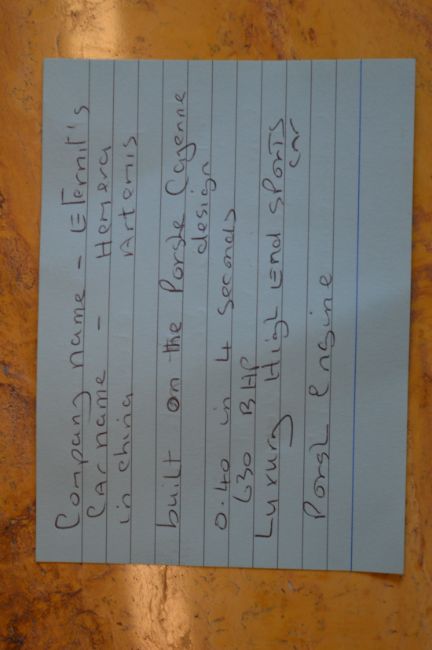 Company name - Eternit's
Car name - Hemera
in china Artemis
built on the Porshe Cayenne
design
0.40 in 4 seconds
630 BHP
Luxury High End sports
car
Porsh Engine